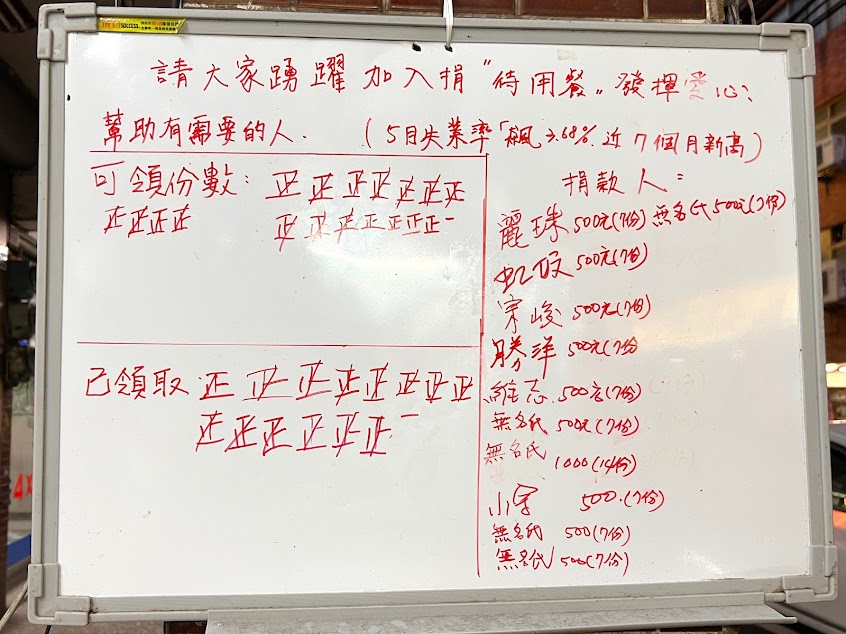 請大家踴躍加入捐"待用餐"發揮愛心:
幫助有需要的人. (5月失業率「飆」3.68%. 近7個月新高)
可領份數: 正正正正正正正
正正正正 正正正正正正正一
已領取 正正正正正正正正
正正正正正正一
捐款人:
麗珠 500元(7份) 無名氏 500元(7份)
500元(7份)
宗峻 500元(7份)
勝洋 500元(7份
維志. 500元(7份)
無名氏 500元(7份)
無名氏 1000(14份)
500.(7份)
無名氏 500(7份)
無名氏 500(7份)